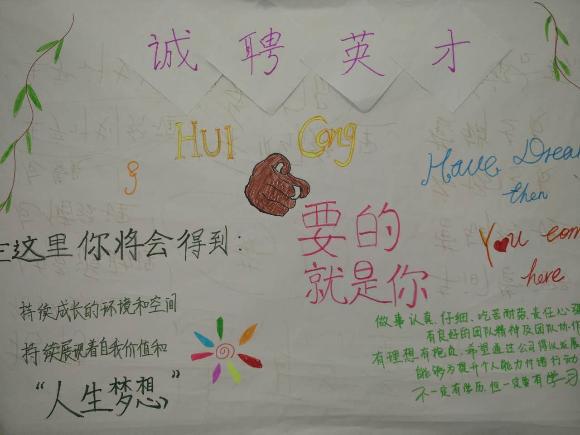 诚聘英才
HUI Cong
Have Drea
then
You com
here
要的
就是你
这里你将会得到:
持续成长的环境和空间
持续展现着自我价值和
"人生梦想"
做事认真.仔细.吃苦耐劳.责任心强
有良好的团队精神及团队协作
有理想.有抱负.希望通过公司得以发展
能够为提升个人能力付诸行动
不一定有学历.但一定要有学习